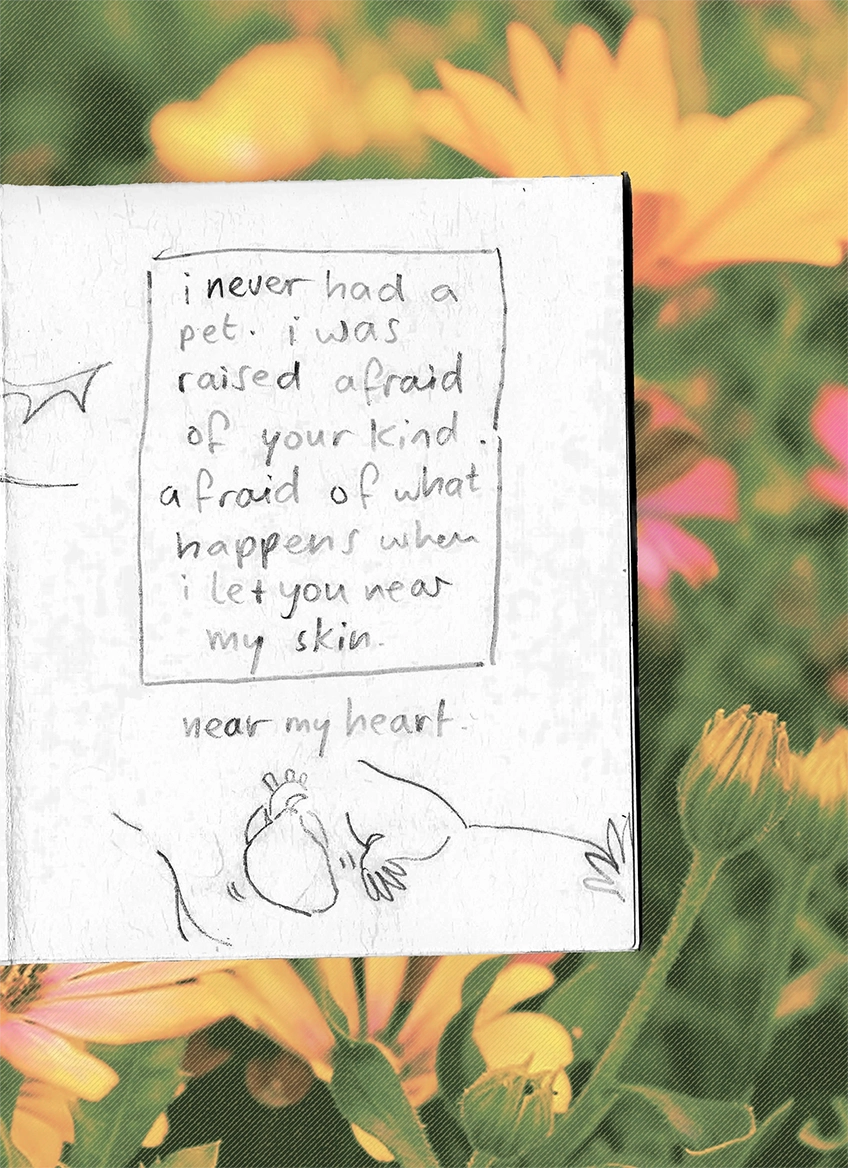 i never had a
pet. i was
raised afraid
of your kind.
afraid of what
happens when
i let you near
my skin.
near my heart.